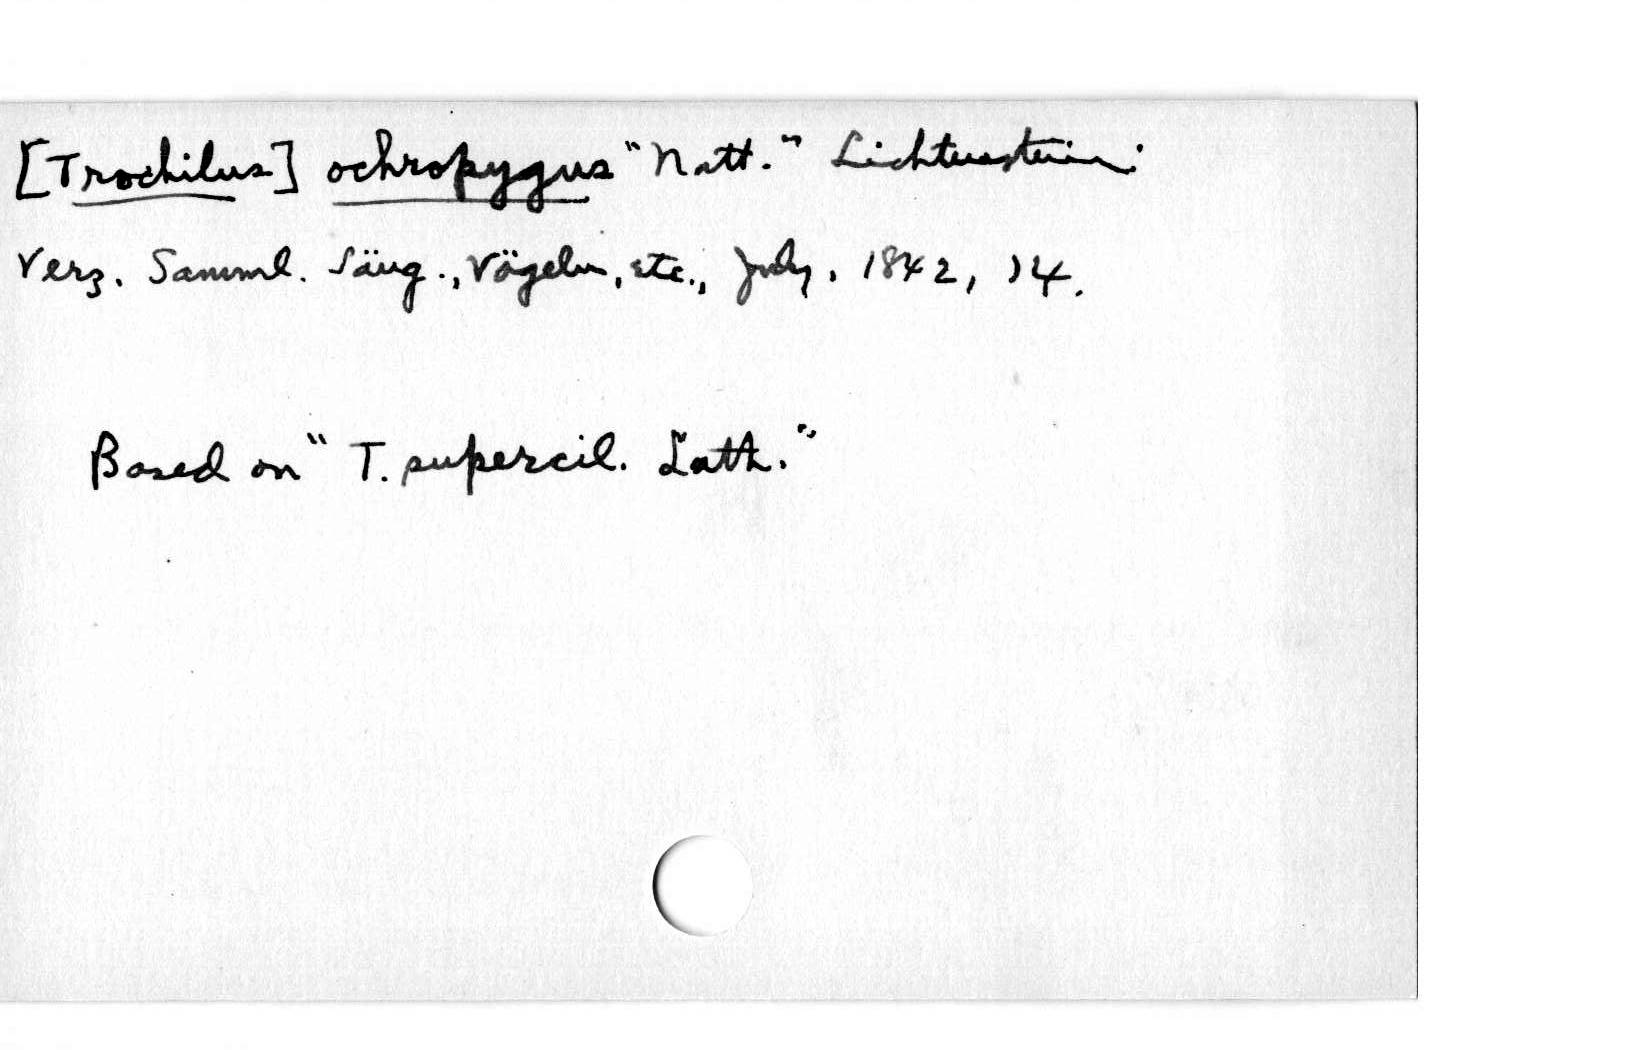 [Trochilus] ochropygus "Natt." Lichtenstein.
Verz. Samml. Säug., Vögeln, etc., July, 1842, 14.
Based on "T. supercil. Lath."